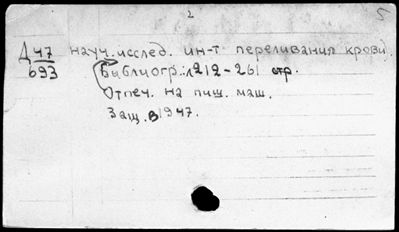 2
5
Д 47 науч. исслед. ин-т переливания крови.
693 Библиогр.: л 212-261 стр.
Отпеч. на пиш. маш.
Защ. в 1947.